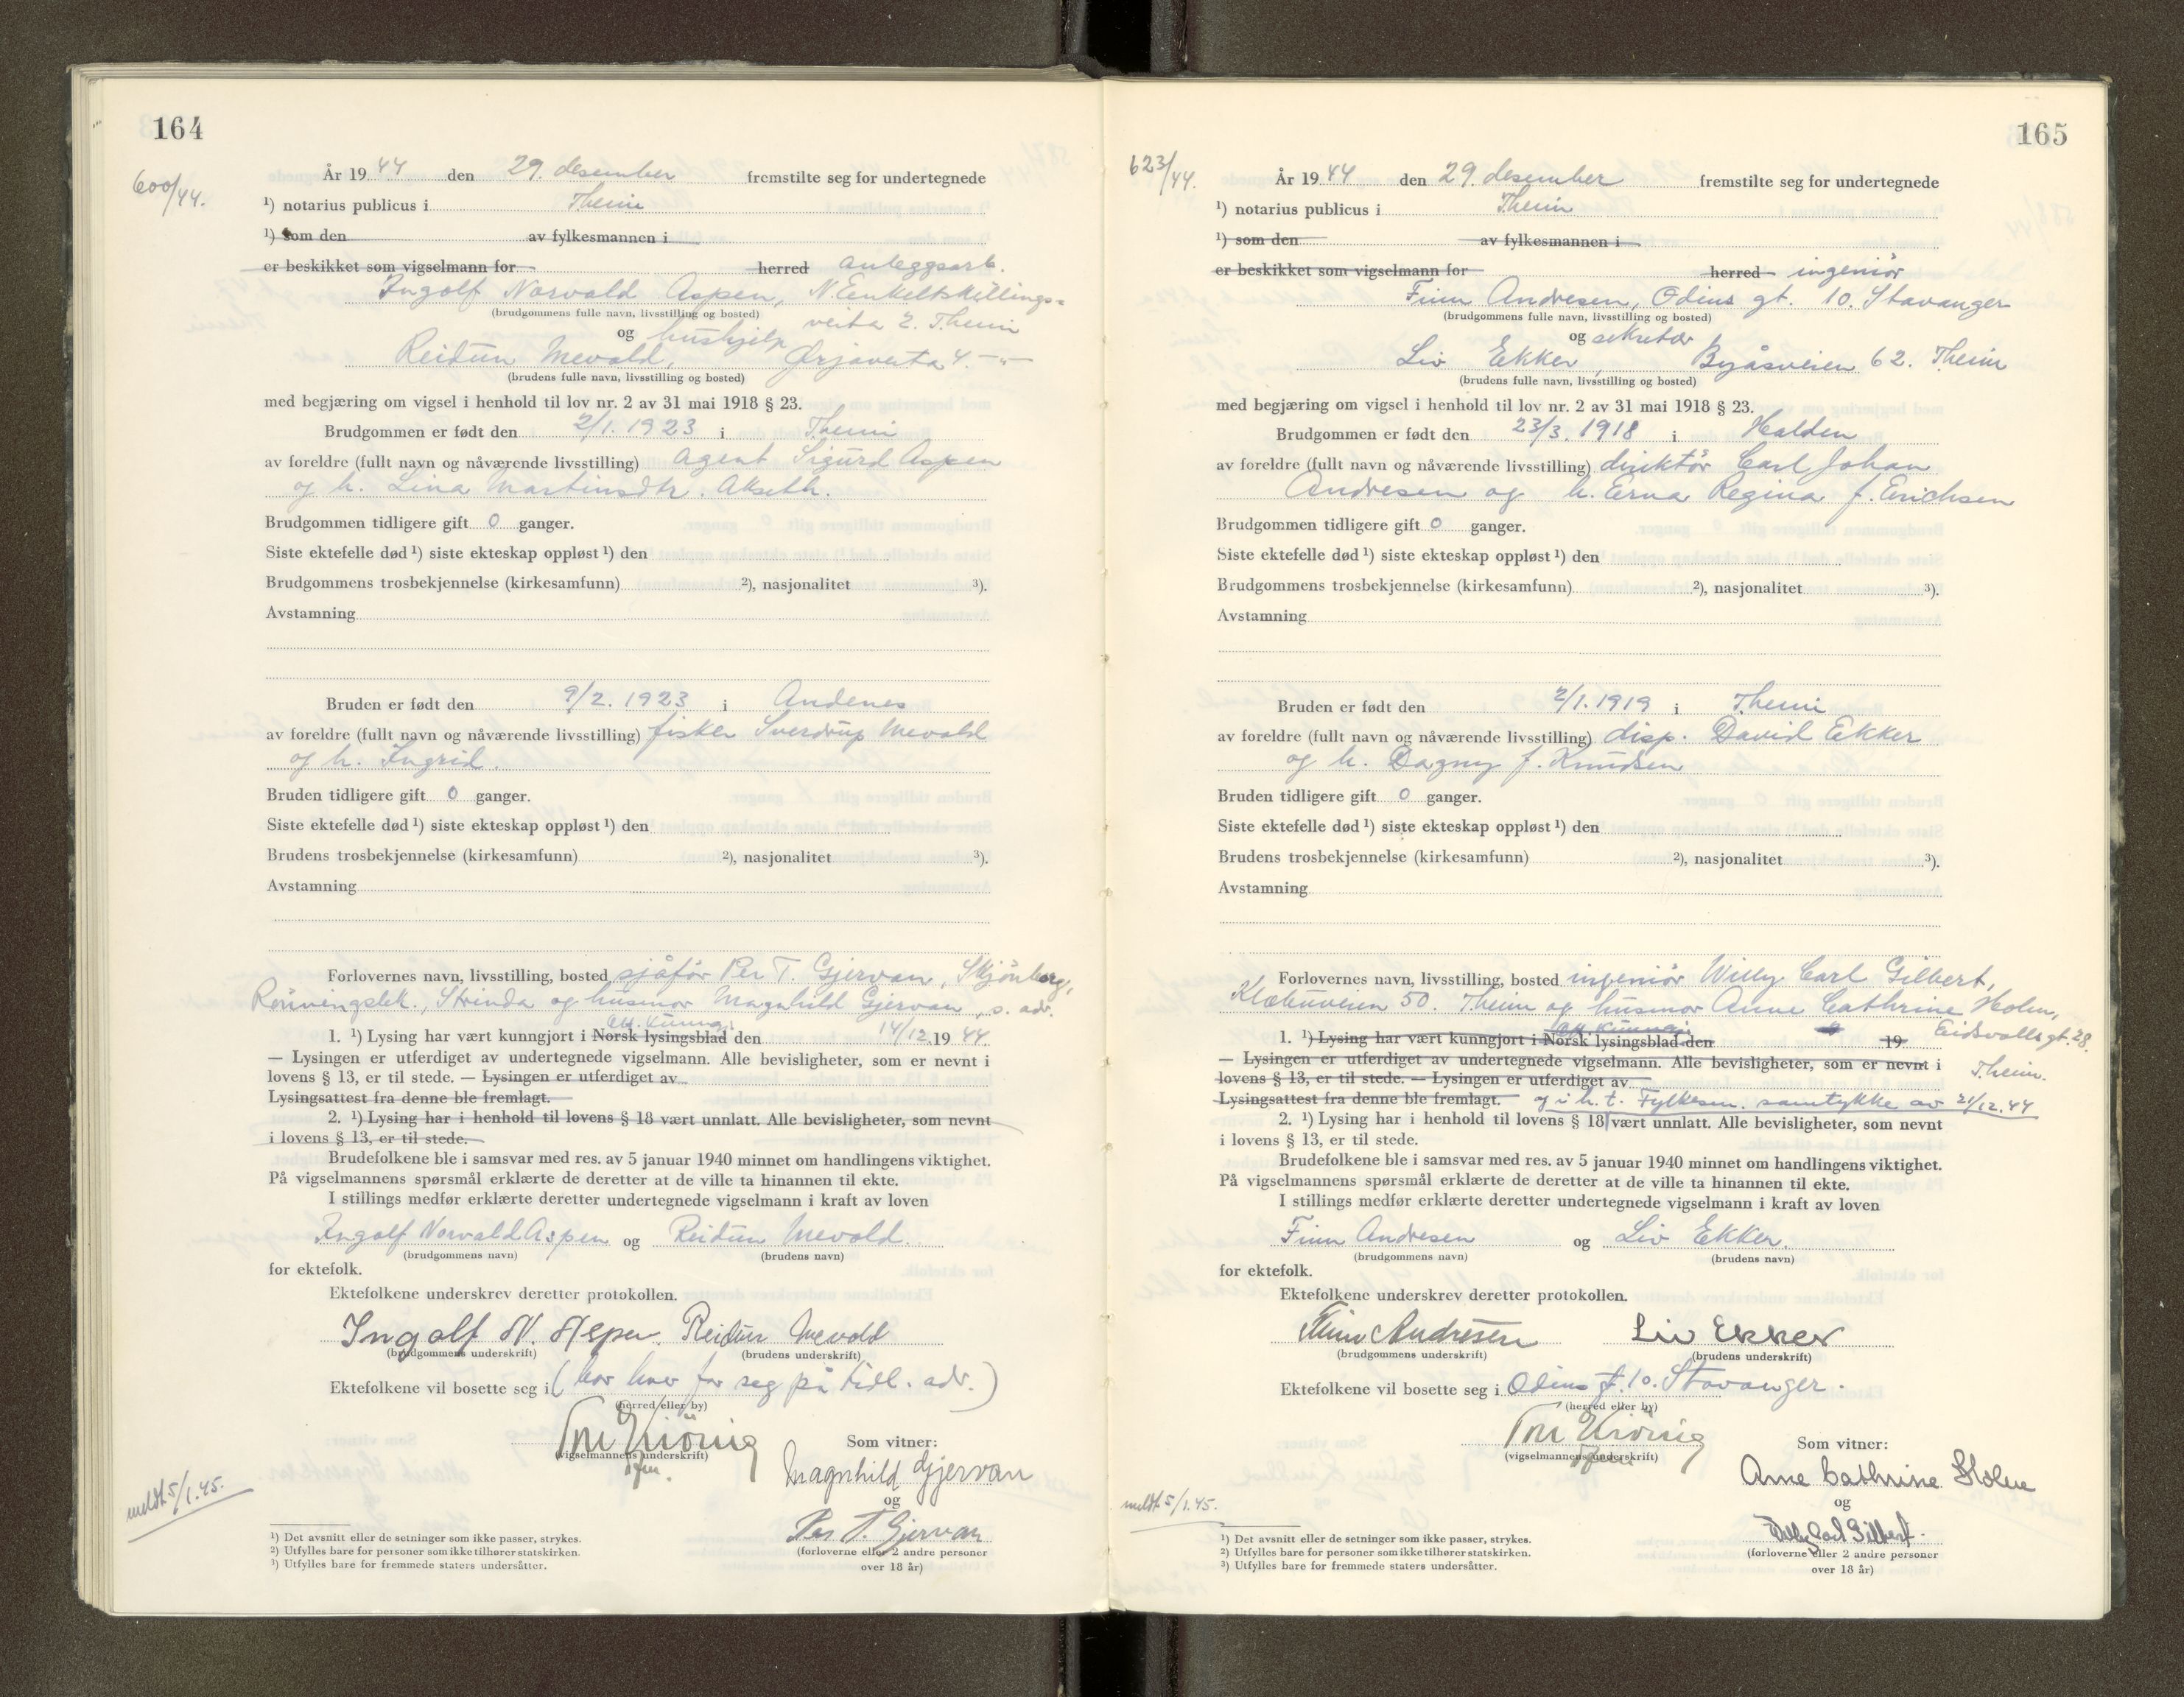 164
600/44.
År 19 44 den 29. desember fremstilte seg for undertegnede
¹) notarius publicus i Theim
¹) som den av fylkesmannen i
er beskikket som vigselmann for herred anleggsarb.
Ingolf Norvald Aspen, N. Enkeltskillings-
(brudgommens fulle navn, livsstilling og bosted) veita 2. Theim
og hushjelp
Reidun Mevold, Ørjaveita 4. -"-
(brudens fulle navn, livsstilling og bosted)
med begjæring om vigsel i henhold til lov nr. 2 av 31 mai 1918 § 23.
Brudgommen er født den 2/1. 1923 i Theim
av foreldre (fullt navn og nåværende livsstilling) agent Sigurd Aspen
og h. Lina Martinsdtr. Akseth.
Brudgommen tidligere gift 0 ganger.
Siste ektefelle død ¹) siste ekteskap oppløst ¹) den
Brudgommens trosbekjennelse (kirkesamfunn) ²), nasjonalitet ³).
Avstamning
Bruden er født den 9/2. 1923 i Andenes
av foreldre (fullt navn og nåværende livsstilling) fisker Sverdrup Mevold
og h. Ingrid.
Bruden tidligere gift 0 ganger.
Siste ektefelle død ¹) siste ekteskap oppløst ¹) den
Brudens trosbekjennelse (kirkesamfunn) ²), nasjonalitet ³).
Avstamning
Forlovernes navn, livsstilling, bosted sjåfør Per T. Gjervan, Skjønberg,
Strinda og husmor Magnhild Gjervan, s. adr.
1. ¹) Lysing har vært kunngjort i Norsk lysingsblad den 14/12. 19 44.
— Lysingen er utferdiget av undertegnede vigselmann. Alle bevisligheter, som er nevnt i
lovens § 13, er til stede. — Lysingen er utferdiget av
Lysingsattest fra denne ble fremlagt.
2. ¹) Lysing har i henhold til lovens § 18 vært unnlatt. Alle bevisligheter, som nevnt
i lovens § 13, er til stede.
Brudefolkene ble i samsvar med res. av 5 januar 1940 minnet om handlingens viktighet.
På vigselmannens spørsmål erklærte de deretter at de ville ta hinannen til ekte.
I stillings medfør erklærte deretter undertegnede vigselmann i kraft av loven
Ingolf Norvald Aspen og Reidun Mevold.
(brudgommens navn) (brudens navn)
for ektefolk.
Ektefolkene underskrev deretter protokollen.
Ingolf N. Aspen. Reidun Mevold
(brudgommens underskrift) (brudens underskrift)
Ektefolkene vil bosette seg i (bor hver for seg på tidl. adr.)
(herred eller by)
(vigselmannens underskrift)
Som vitner:
Magnhild Gjervan
og
Per T. Gjervan
(forloverne eller 2 andre personer
over 18 år)
meldt 5/1.45.
¹) Det avsnitt eller de setninger som ikke passer, strykes.
²) Utfylles bare for personer som ikke tilhører statskirken.
³) Utfylles bare for fremmede staters undersåtter.
165
623/44.
År 19 44 den 29. desember fremstilte seg for undertegnede
¹) notarius publicus i Theim
¹) som den av fylkesmannen i
er beskikket som vigselmann for herred ingeniør
Finn Andresen, Odins gt. 10. Stavanger
(brudgommens fulle navn, livsstilling og bosted)
og sekretær
Liv Ekker, Byåsveien 62. Theim
(brudens fulle navn, livsstilling og bosted)
med begjæring om vigsel i henhold til lov nr. 2 av 31 mai 1918 § 23.
Brudgommen er født den 23/3. 1918 i Halden
av foreldre (fullt navn og nåværende livsstilling) direktør Carl Johan
Andresen og h. Erna Regina f. Erichsen
Brudgommen tidligere gift 0 ganger.
Siste ektefelle død ¹) siste ekteskap oppløst ¹) den
Brudgommens trosbekjennelse (kirkesamfunn) ²), nasjonalitet ³).
Avstamning
Bruden er født den 2/1. 1919 i Theim
av foreldre (fullt navn og nåværende livsstilling) disp. David Ekker
og h. Dagny f. Knudsen
Bruden tidligere gift 0 ganger.
Siste ektefelle død ¹) siste ekteskap oppløst ¹) den
Brudens trosbekjennelse (kirkesamfunn) ²), nasjonalitet ³).
Avstamning
Forlovernes navn, livsstilling, bosted ingeniør Willy Carl Gilbert,
Klæbuveien 50. Theim og husmor Anne Cathrine Holm,
Eidsvolls gt. 28.
Theim.
1. ¹) Lysing har vært kunngjort i Norsk lysingsblad den 19
— Lysingen er utferdiget av undertegnede vigselmann. Alle bevisligheter, som er nevnt i
lovens § 13, er til stede. — Lysingen er utferdiget av
Lysingsattest fra denne ble fremlagt. og i h. t. Fylkesm. samtykke av 21/12.44
2. ¹) Lysing har i henhold til lovens § 18 vært unnlatt. Alle bevisligheter, som nevnt
i lovens § 13, er til stede.
Brudefolkene ble i samsvar med res. av 5 januar 1940 minnet om handlingens viktighet.
På vigselmannens spørsmål erklærte de deretter at de ville ta hinannen til ekte.
I stillings medfør erklærte deretter undertegnede vigselmann i kraft av loven
Finn Andresen og Liv Ekker.
(brudgommens navn) (brudens navn)
for ektefolk.
Ektefolkene underskrev deretter protokollen.
Finn Andresen Liv Ekker
(brudgommens underskrift) (brudens underskrift)
Ektefolkene vil bosette seg i Odins gt. 10. Stavanger.
(herred eller by)
(vigselmannens underskrift)
Som vitner:
Anne Cathrine Holm
og
Willy Carl Gilbert.
(forloverne eller 2 andre personer
over 18 år)
meldt 5/1.45.
¹) Det avsnitt eller de setninger som ikke passer, strykes.
²) Utfylles bare for personer som ikke tilhører statskirken.
³) Utfylles bare for fremmede staters undersåtter.